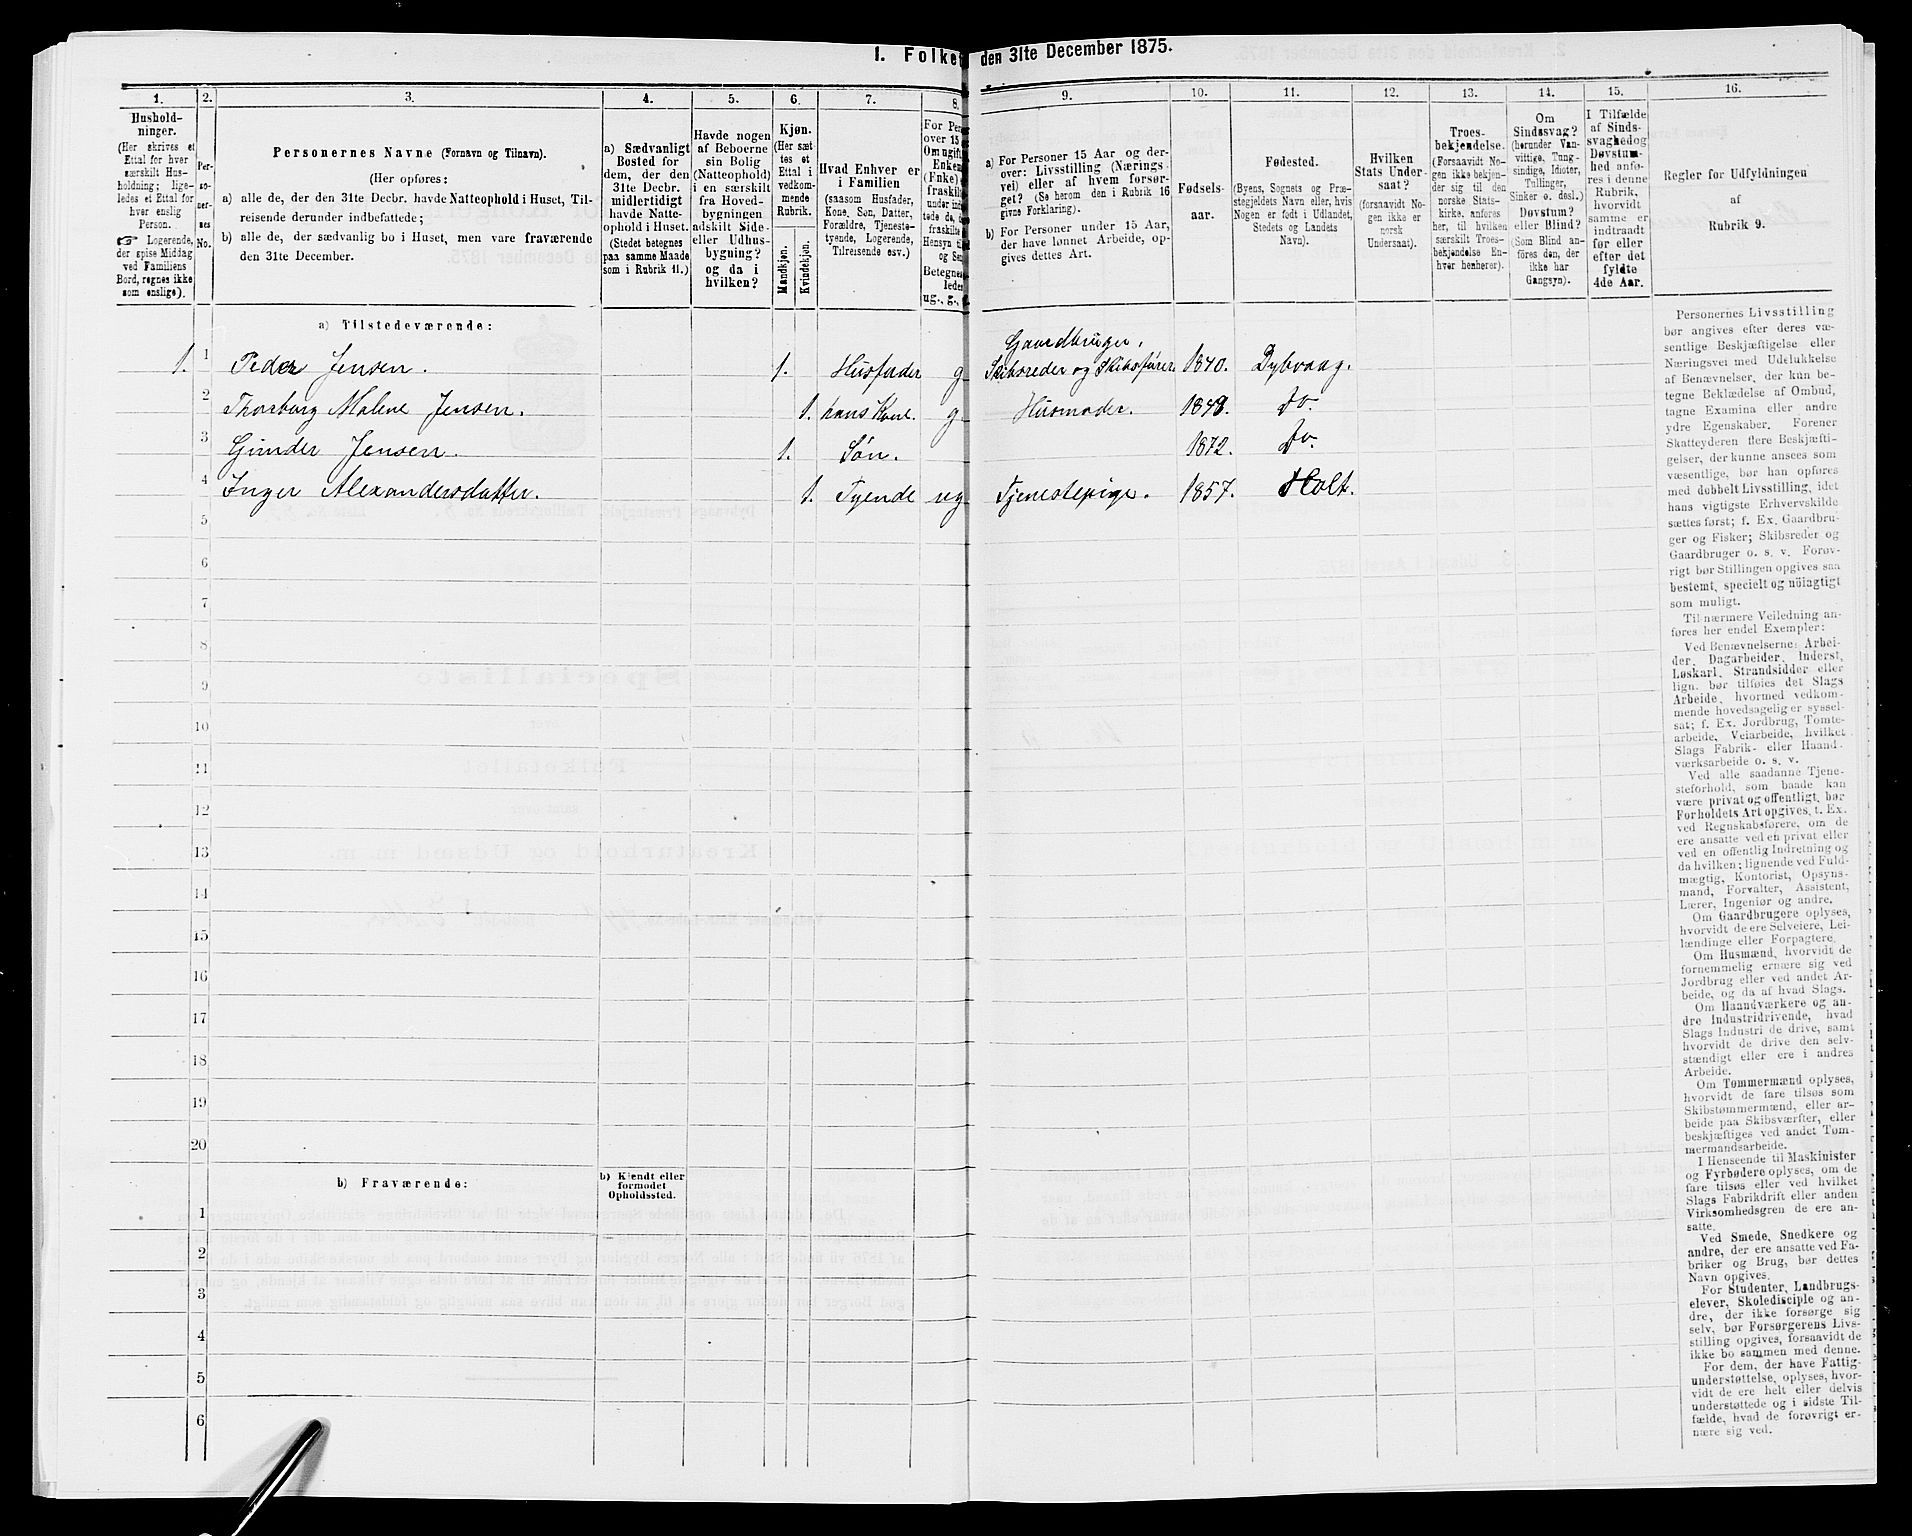 1. Folke den 31te December 1875.
1. 2. 3. 4. 5. 6. 7. 8. 9. 10. 11. 12. 13. 14. 15. 16.
Hushold-
ninger.
(Her skrives et
Ettal for hver
særskilt Hus-
holdning; lige-
ledes et Ettal for
hver enslig
Person.
☞ Logerende,
der spise Middag
ved Familiens
Bord, regnes ikke
som enslige).
Per-
so-
ner-
nes
No.
Personernes Navne (Fornavn og Tilnavn).
(Her opføres:
a) alle de, der den 31te Decbr. havde Natteophold i Huset, Til-
reisende derunder indbefattede;
b) alle de, der sædvanlig bo i Huset, men vare fraværende
den 31te December.
a) Sædvanligt
Bosted for
dem, der den
31te Decbr.
midlertidigt
havde Natte-
ophold i Huset.
(Stedet betegnes
paa samme Maade
som i Rubrik 11.)
Havde nogen
af Beboerne
sin Bolig
(Natteophold)
i en særskilt
fra Hoved-
bygningen
adskilt Side-
eller Udhus-
bygning?
og da i
hvilken?
Kjøn.
(Her sæt-
tes et
Ettal i
vedkom-
mende
Rubrik.
Mandkjøn.
Kvindekjøn.
Hvad Enhver er
i Familien
(saasom Husfader,
Kone, Søn, Datter,
Forældre, Tjeneste-
tyende, Logerende,
Tilreisende osv.).
For Per
over 15
Om ugift
Enkem
(Enke)
fraskilt
under ind
tede de,
fraskilte
Hensyn til
og Se
Betegne
lede
ug., g.,
a) For Personer 15 Aar og der-
over: Livsstilling (Nærings-
vei) eller af hvem forsør-
get? (Se herom den i Rubrik 16
givne Forklaring).
b) For Personer under 15 Aar,
der have lønnet Arbeide, op-
gives dettes Art.
Fødsels-
aar.
Fødested.
(Byens, Sognets og Præ-
stegjeldets Navn eller, hvis
Nogen er født i Udlandet,
Stedets og Landets
Navn).
Hvilken
Stats Under-
saat?
(forsaavidt No-
gen ikke er
norsk
Undersaat).
Troes-
bekjendelse.
(Forsaavidt No-
gen ikke bekjen-
der sig til den
norske Stats-
kirke, anføres
her, til hvilken
særskilt Troes-
bekjendelse En-
hver henhører).
Om
Sindssvag?
(herunder Van-
vittige, Tung-
sindige, Idioter,
Tullinger,
Sinker o. desl.)
Døvstum?
eller Blind?
(Som Blind an-
føres den, der
ikke har
Gangsyn).
I Tilfælde
af Sinds-
svaghed og
Døvstum-
hed anfø-
res i denne
Rubrik,
hvorvidt
samme er
indtraadt
før eller
efter det
fyldte
4de Aar.
Regler for Udfyldningen
af
Rubrik 9.
a) Tilstedeværende:
1. 1 Peder Jensen. 1. Husfader g Gaardbruger, Skibsreder og Skibsfører 1840. Dybvaag.
2 Thorborg Malene Jensen. 1. hans Kone. g Husmoder. 1848. do.
3 Gunder Jensen. 1. Søn. 1872. do.
4 Inger Alexandersdatter. 1. Tyende ug Tjenestepige. 1857. Holt.
5
6
7
8
9
10
11
12
13
14
15
16
17
18
19
20
b) Fraværende:
b) Kjendt eller
formodet
Opholdssted.
1
2
3
4
5
6
Personernes Livsstilling
bør angives efter deres væ-
sentlige Beskjæftigelse eller
Næringsvei med Udelukkelse
af Benævnelser, der kun be-
tegne Beklædelse af Ombud,
tagne Examina eller andre
ydre Egenskaber. Forener
Skatteyderen flere Beskjæfti-
gelser, der kunne ansees som
væsentlige, bør han opføres
med dobbelt Livsstilling, idet
hans vigtigste Erhvervskilde
sættes først; f. Ex. Gaardbru-
ger og Fisker; Skibsreder og
Gaardbruger o. s. v. Forøv-
rigt bør Stillingen opgives saa
bestemt, specielt og nöiagtigt
som muligt.
Til nærmere Veiledning an-
føres her endel Exempler:
Ved Benævnelserne: Arbei-
der, Dagarbeider, Inderst,
Løskarl, Strandsidder eller
lign. bør tilføies det Slags
Arbeide, hvormed vedkom-
mende hovedsagelig er syssel-
sat; f. Ex. Jordbrug, Tomte-
arbeide, Veiarbeide, hvilket
Slags Fabrik- eller Haand-
værksarbeide o. s. v.
Ved alle saadanne Tjene-
steforhold, som baade kan
være privat og offentligt, bør
Forholdets Art opgives, t. Ex.
ved Regnskabsførere, om de
ere ansatte ved en privat eller
ved en offentlig Indretning og
da hvilken; lignende ved Fuld-
mægtig, Kontorist, Opsyns-
mand, Forvalter, Assistent,
Lærer, Ingeniør og andre.
Om Gaardbrugere oplyses,
hvorvidt de ere Selveiere, Lei-
lændinge eller Forpagtere.
Om Husmænd, hvorvidt de
fornemmelig ernære sig ved
Jordbrug eller ved andet Ar-
beide, og da af hvad Slags.
Om Haandværkere og an-
dre Industridrivende, hvad
Slags Industri de drive, samt
hvorvidt de drive den selv-
stændigt eller ere i andres
Arbeide.
Om Tømmermænd oplyses,
hvorvidt de fare tilsøs som
Skibstømmermænd, eller ar-
beide paa Skibsværfter, eller
beskjæftiges ved andet Tøm-
mermandsarbeide.
I Henseende til Maskinister
og Fyrbødere oplyses, om de
fare tilsøs eller ved hvilket
Slags Fabrikdrift eller anden
Virksomhedsgren de ere an-
satte.
Ved Smede, Snedkere og
andre, der ere ansatte ved Fa-
briker og Brug, bør dettes
Navn opgives.
For Studenter, Landbrugs-
elever, Skoledisciple og an-
dre, der ikke forsørge sig
selv, bør Forsørgerens Livs-
stilling opgives, forsaavidt de
ikke bo sammen med denne.
For dem, der have Fattig-
understøttelse, oplyses, hvor-
vidt de ere helt eller delvis
understøttede og i sidste Til-
fælde, hvad de forøvrigt er-
nære sig ved.